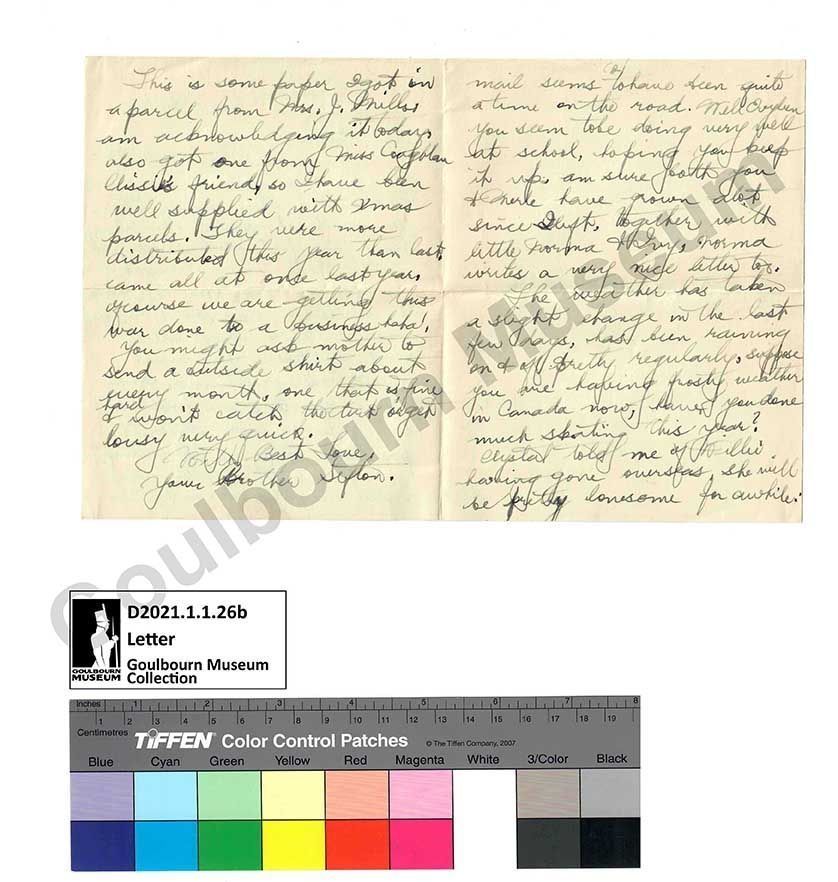 This is some paper I got in
a parcel from Mrs. J. Mills,
am acknowledging it today,
also got one from Miss Coughlan
friend, so I have been
well supplied with Xmas
parcels. They were more
distributed this year than last,
came all at onse last year,
ofcourse we are getting this
war done to a business haha!
You might ask mother to
send a outside shirt about
every month, one that is fine
& hard won't catch the dirt or get
lousy very quick.
With Best Love,
Your Brother Sifton.
(2)
mail seems to have been quite
a time on the road. Well
you seem to be doing very well
at school, hoping you keep
it up, am sure both you
& Merle have grown alot
since I left, together with
little Norma & Ivy, Norma
writes a very nice letter to.
The weather has taken
a slight change in the last
few days, has been raining
on & off pretty regularly, suppose
you are having frosty weather
in Canada now, have you done
much skating this year?
told me of Willie
having gone overseas, she will
be pretty lonesome for awhile.
Goulbourn Museum
D2021.1.1.26b
Letter
Goulbourn Museum
Collection
GOULBOURN
MUSEUM
Inches 1 2 3 4 5 6 7 8
Centimetres 1 2 3 4 5 6 7 8 9 10 11 12 13 14 15 16 17 18 19
TIFFEN Color Control Patches © The Tiffen Company, 2007
Blue Cyan Green Yellow Red Magenta White 3/Color Black